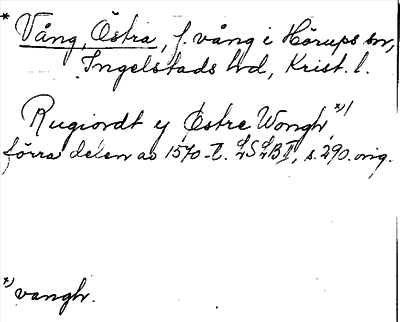 * Vång, Östra, f. vång i Hörups sn,
Ingelstads hd, Krist. l.
Rugiordt y Østre Wongh, *)
förra delen av 1570-t. LSLB I, s. 290. orig.
*) vangh.